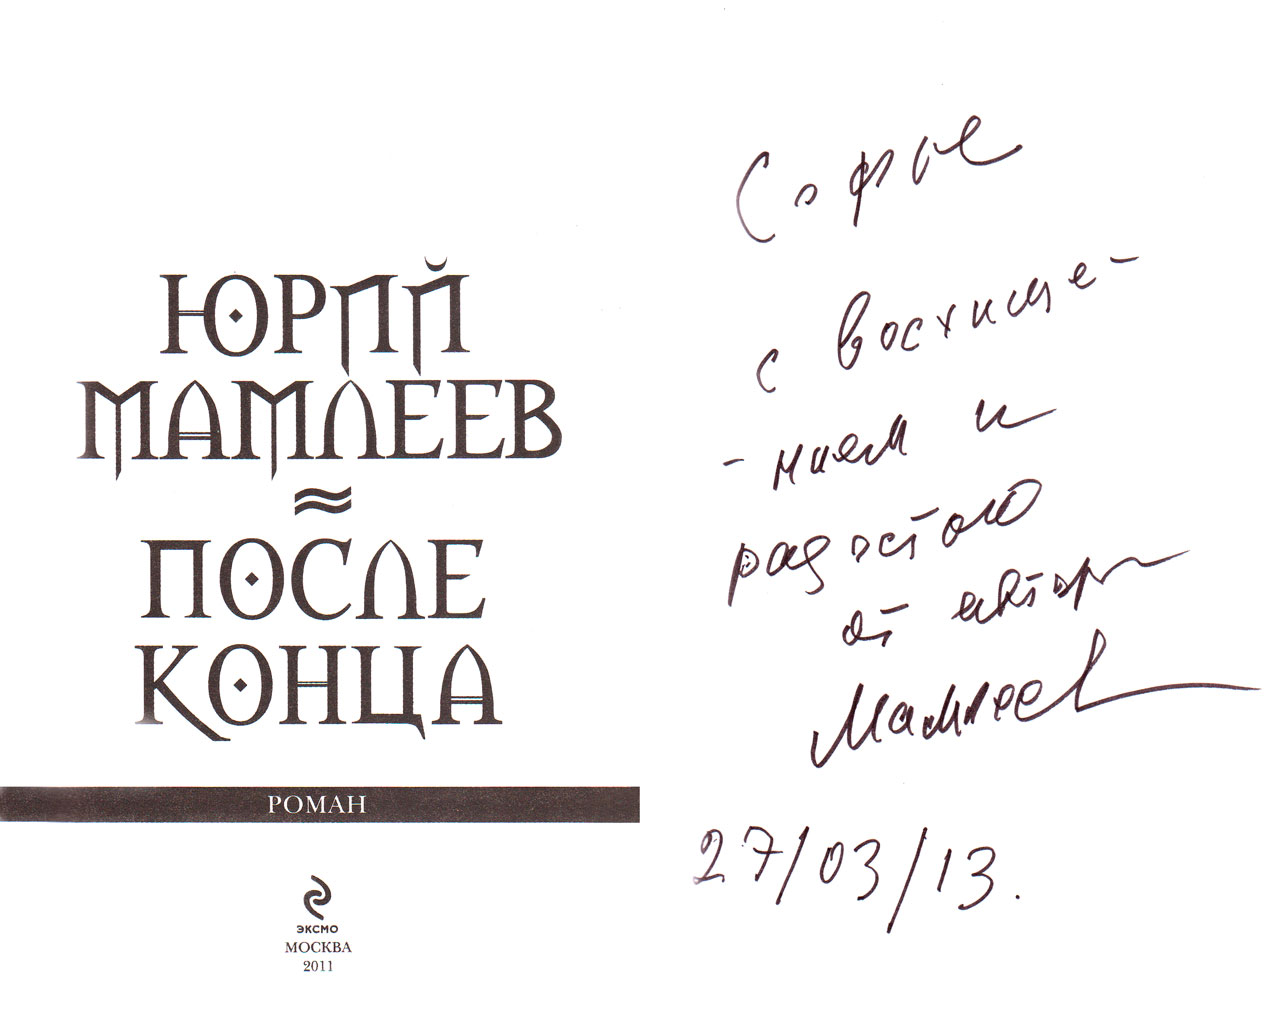 ЮРИЙ
МАМЛЕЕВ
≈
ПОСЛЕ
КОНЦА
РОМАН
ЭКСМО
МОСКВА
2011
Софье
с восхище-
-нием и
радостью
от автора
Мамлеев
27/03/13.